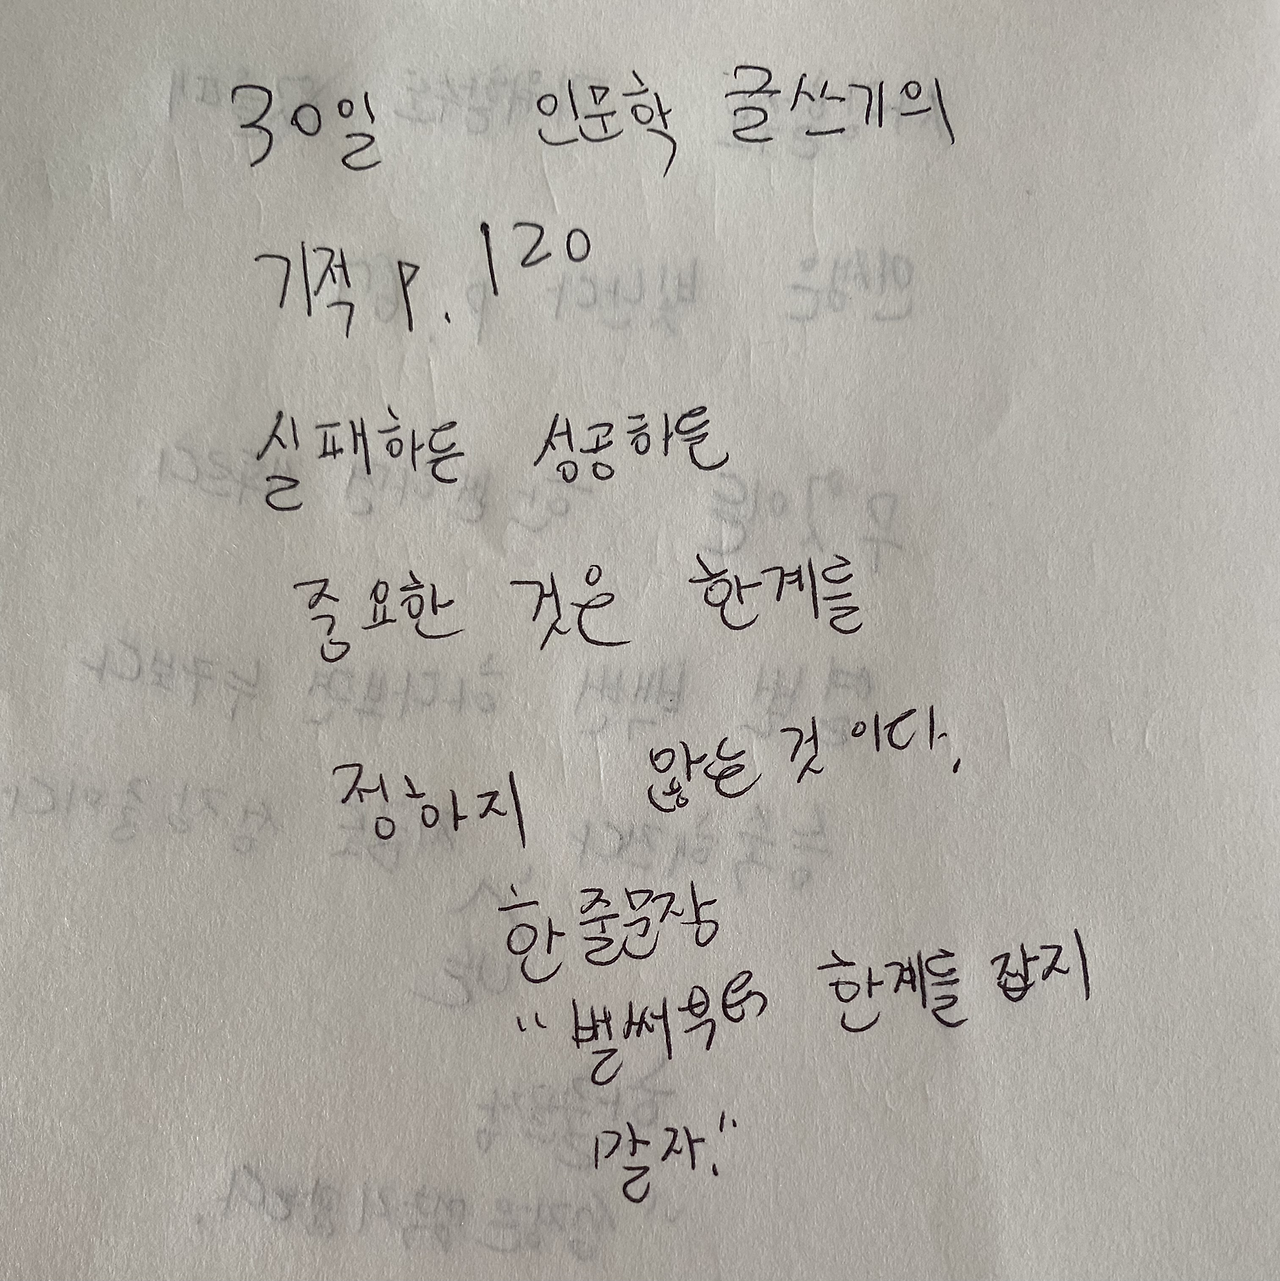 30일 인문학 글쓰기의
기적 p. 120
실패하든 성공하든
중요한 것은 한계를
정하지 않는 것이다.
한 줄문장
"벌써부터 한계를 잡지
말자."